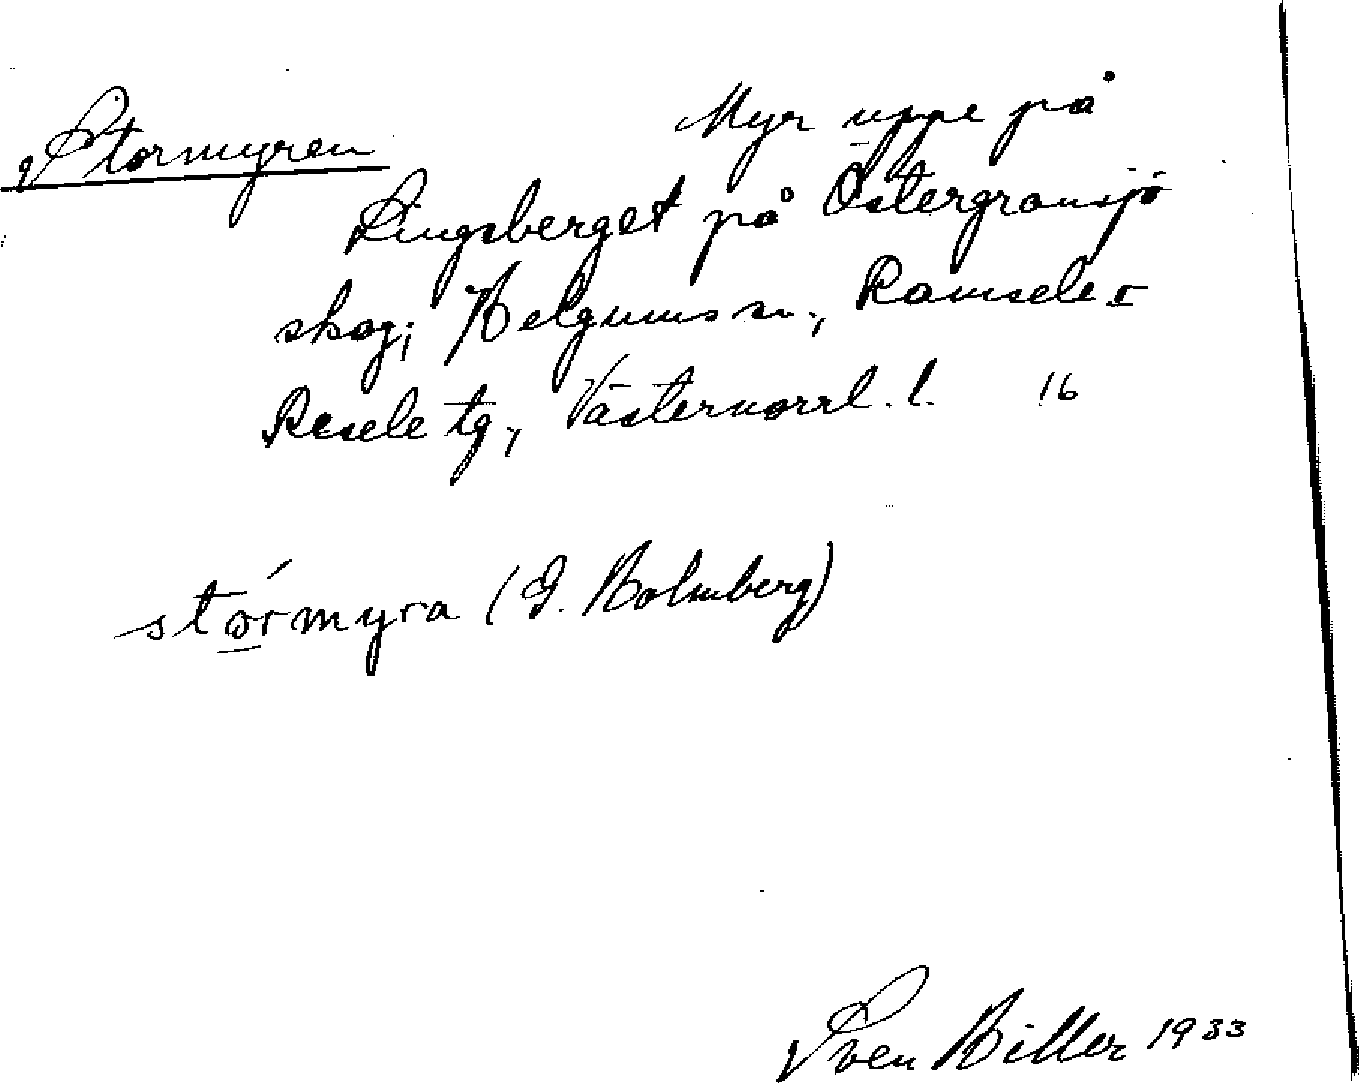 Stormyren Myr uppe på
Kingsberget på Östergransjö
skog; Helgums sn., Ramsele o
Resele tg, Västernorrl. l. 16
stórmyra (I. Holmberg)
Sven Hiller 1933